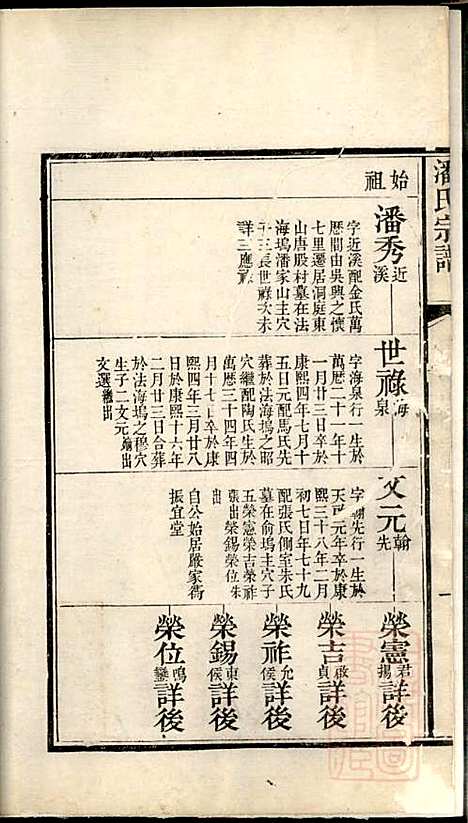 潘氏宗譜
始祖
潘秀 近溪
字近溪配金氏萬
歷間由吳興之懷
七里遷居洞庭東
山唐股村墓在法
海塢潘家山主穴
子三長世祿次未
詳三應祿
世祿 海泉
字海泉行一生於
萬歷二十一年十
一月廿三日卒於
康熙四年七月十
五日元配馬氏先
葬於法海塢之昭
穴繼配陶氏生於
萬歷三十四年四
月十七日卒於康
熙四年三月廿八
日於康熙十六年
二月廿三日合葬
於法海塢之穆穴
生子二文元
文選繼出
文元 翰先
字翰先行一生於
天啟元年卒於康
熙三十八年二月
初七日年七十九
配張氏側室朱氏
墓在俞塢主穴子
五榮憲榮吉榮祚
張出榮錫榮位朱
出
自公始居嚴家衖
振宜堂
榮憲 君揚 詳後
榮吉 啟貞 詳後
榮祚 允侯 詳後
榮錫 東侯 詳後
榮位 鳴鑾 詳後
一